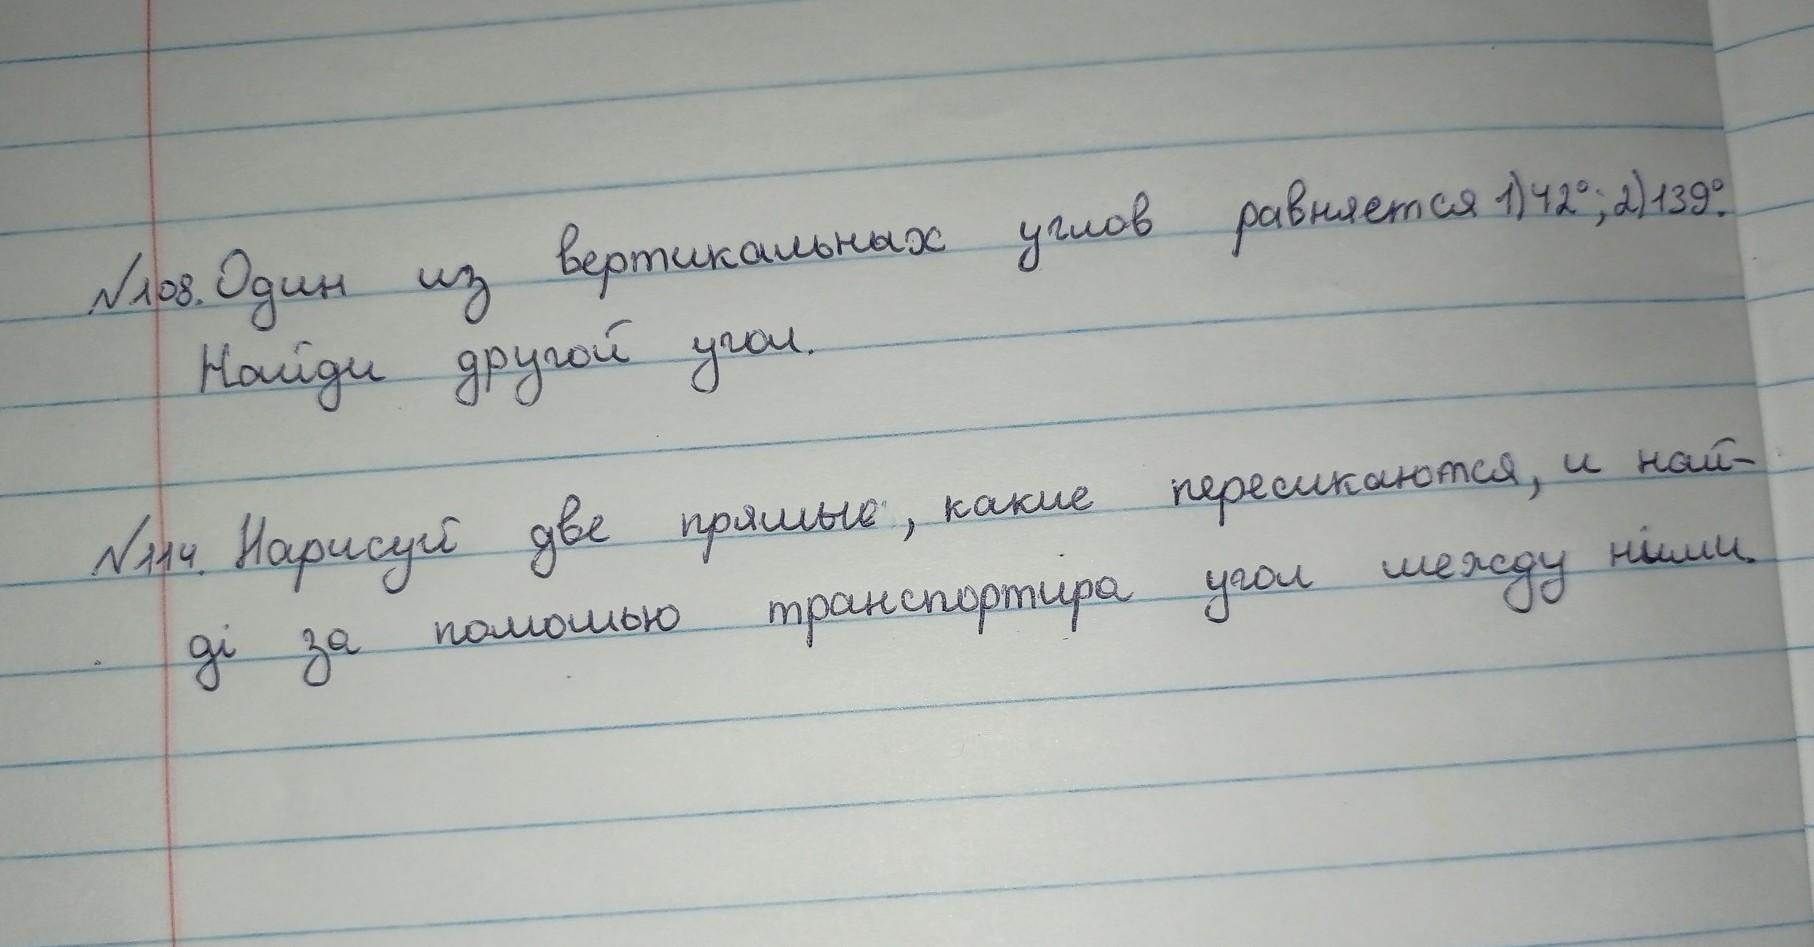 №108. Один из вертикальных углов равняется 1)42°; 2)139°.
Найди другой угол.
№114. Нарисуй две прямые, какие пересикаются, и най-
ді за помошью транспортира угол между німи.